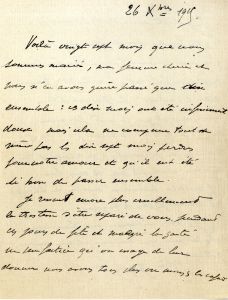 26 Xbre 1915.
Voilà vingt sept mois que nous
sommes mariés, ma femme chérie et
nous n'en avons guère passé que dix
ensemble : ces dix mois ont été infiniment
doux mais cela ne compense tout de
même pas les dix sept mois perdus
pour notre amour et qu'il eut été
si bon de passer ensemble.
Je ressent encore plus cruellement
la tristesse d'être séparé de vous pendant
ces jours de fête et malgré la gaîté
un peu factice qu'on essaye de leur
donner nous avons tous plus ou moins le cafard